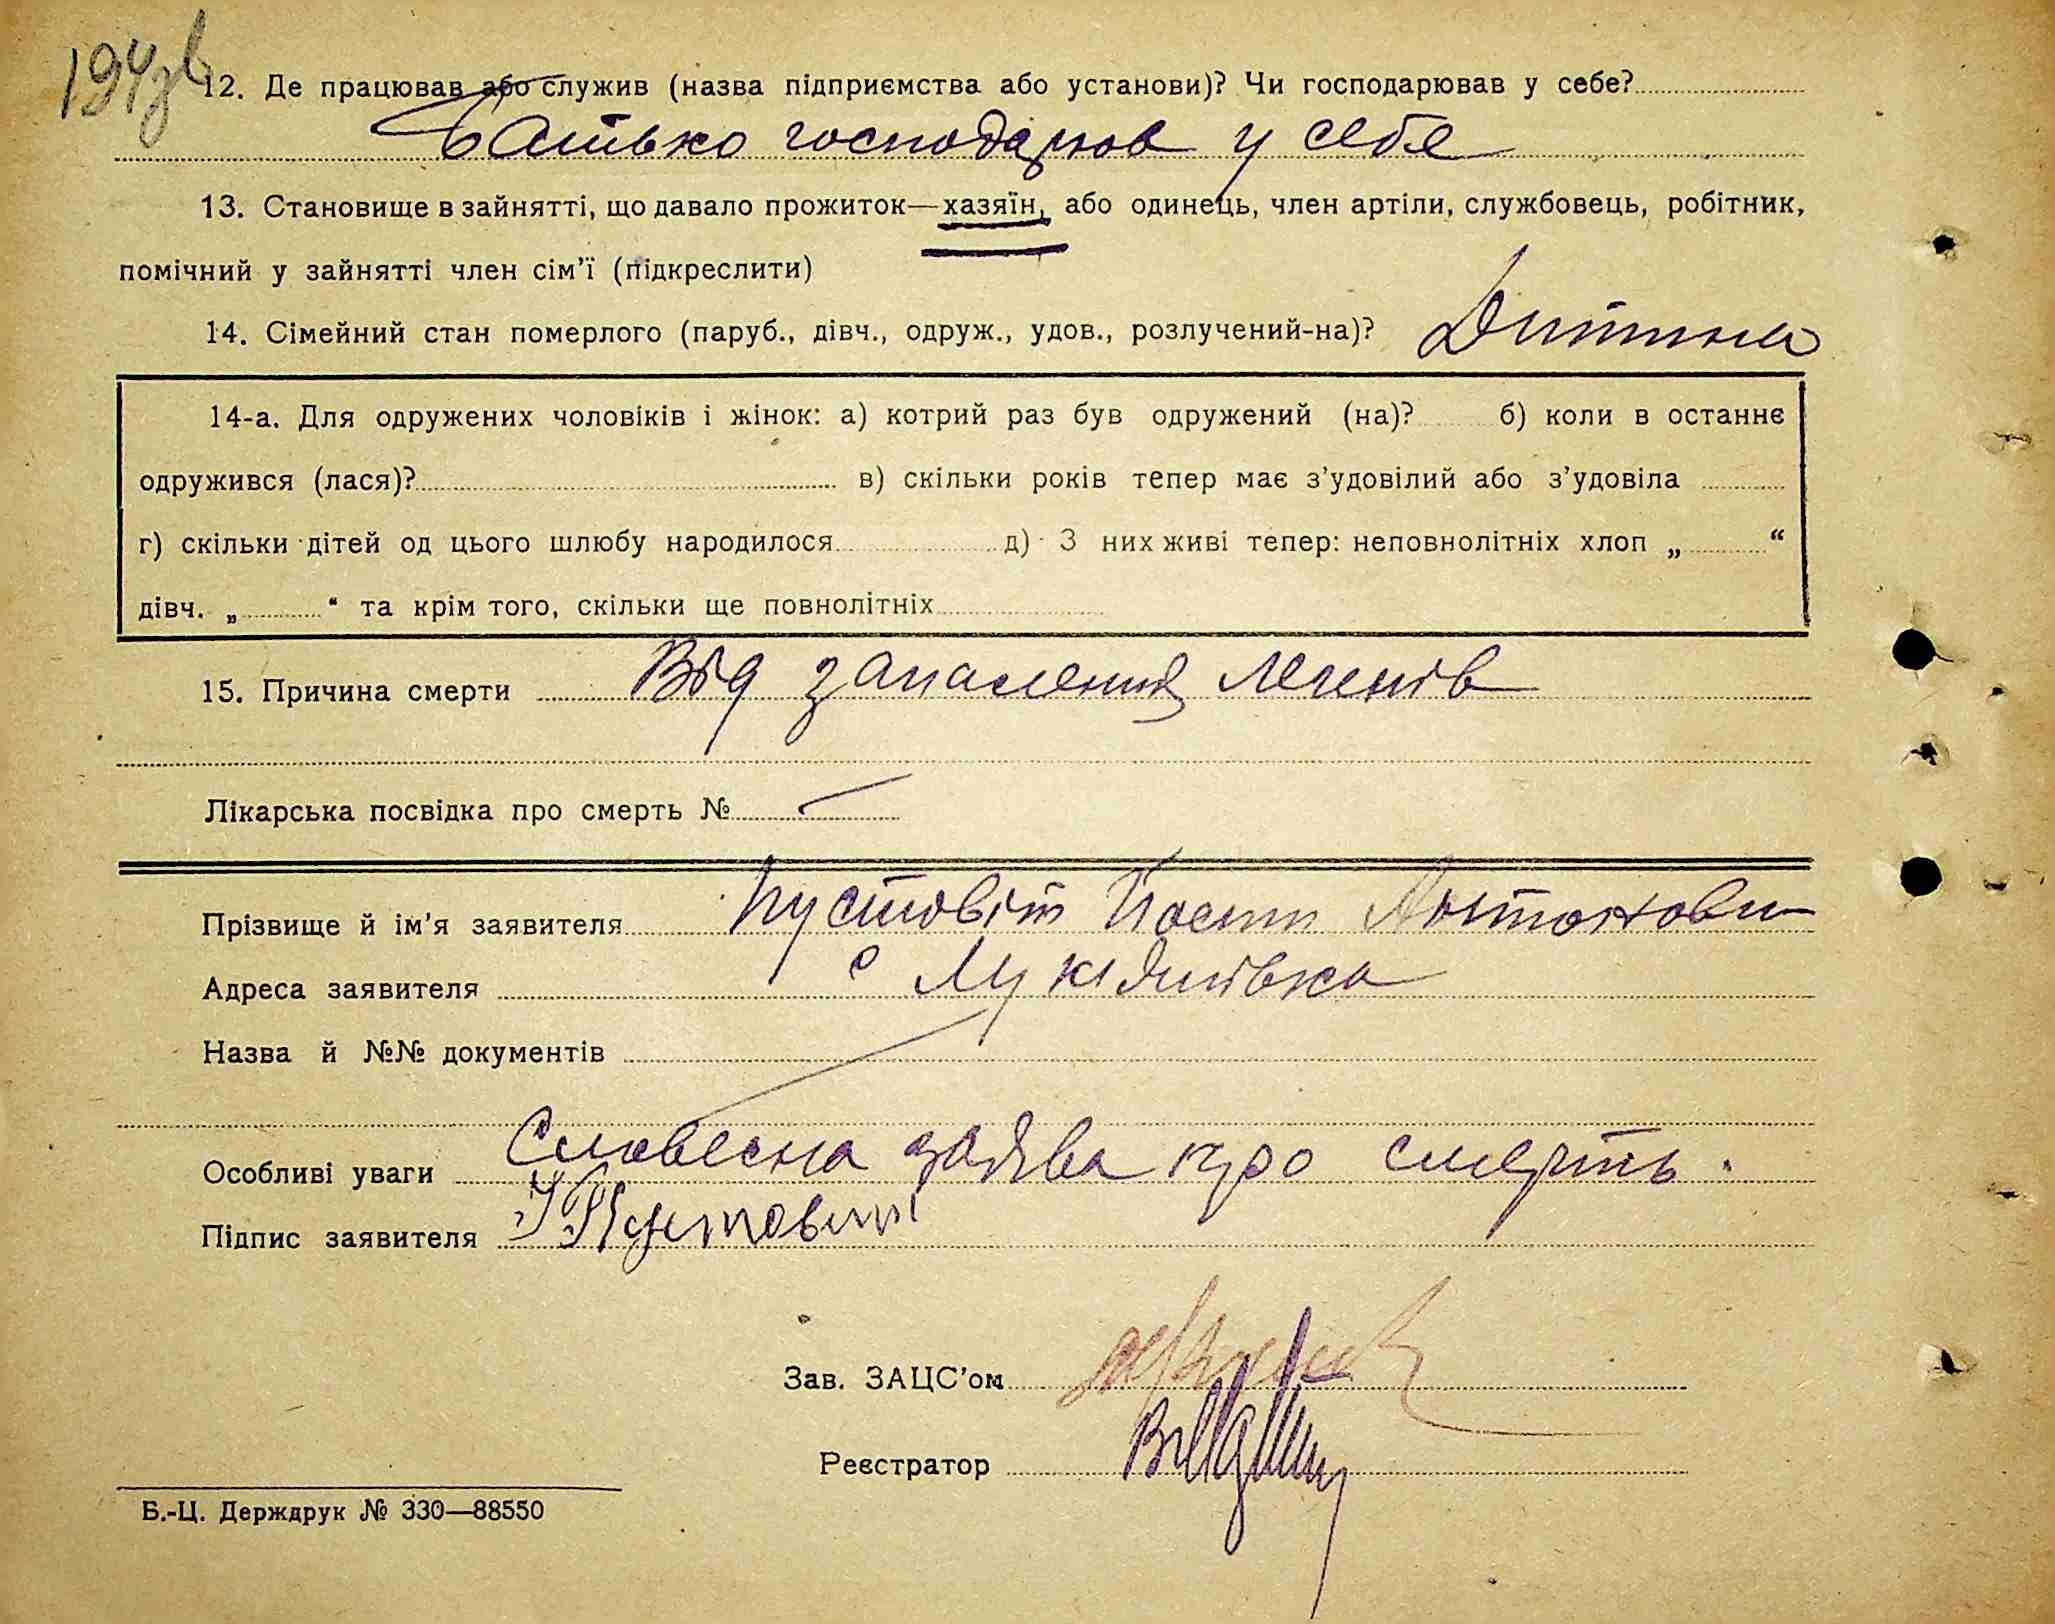 194зв
12. Де працював або служив (назва підприємства або установи)? Чи господарював у себе?
Батько господарюв у себе
13. Становище в зайнятті, що давало прожиток—хазяїн, або одинець, член артіли, службовець, робітник,
помічний у зайнятті член сім'ї (підкреслити)
14. Сімейний стан померлого (паруб., дівч., одруж., удов., розлучений-на)? Дитина
14-а. Для одружених чоловіків і жінок: а) котрий раз був одружений (на)? б) коли в останнє
одружився (лася)? в) скільки років тепер має з'удовілий або з'удовіла
г) скільки дітей од цього шлюбу народилося д) З них живі тепер: неповнолітніх хлоп „ “
дівч. „ “ та крім того, скільки ще повнолітніх
15. Причина смерти Від запалення легенів
Лікарська посвідка про смерть № —
Прізвище й ім'я заявителя Пустовіт Йосип Антонови
Адреса заявителя с Лукіянівка
Назва й №№ документів
Особливі уваги Словесна заява про смерть.
Підпис заявителя Й Пустовит
Зав. ЗАЦС'ом
Реєстратор
Б.-Ц. Держдрук № 330—88550